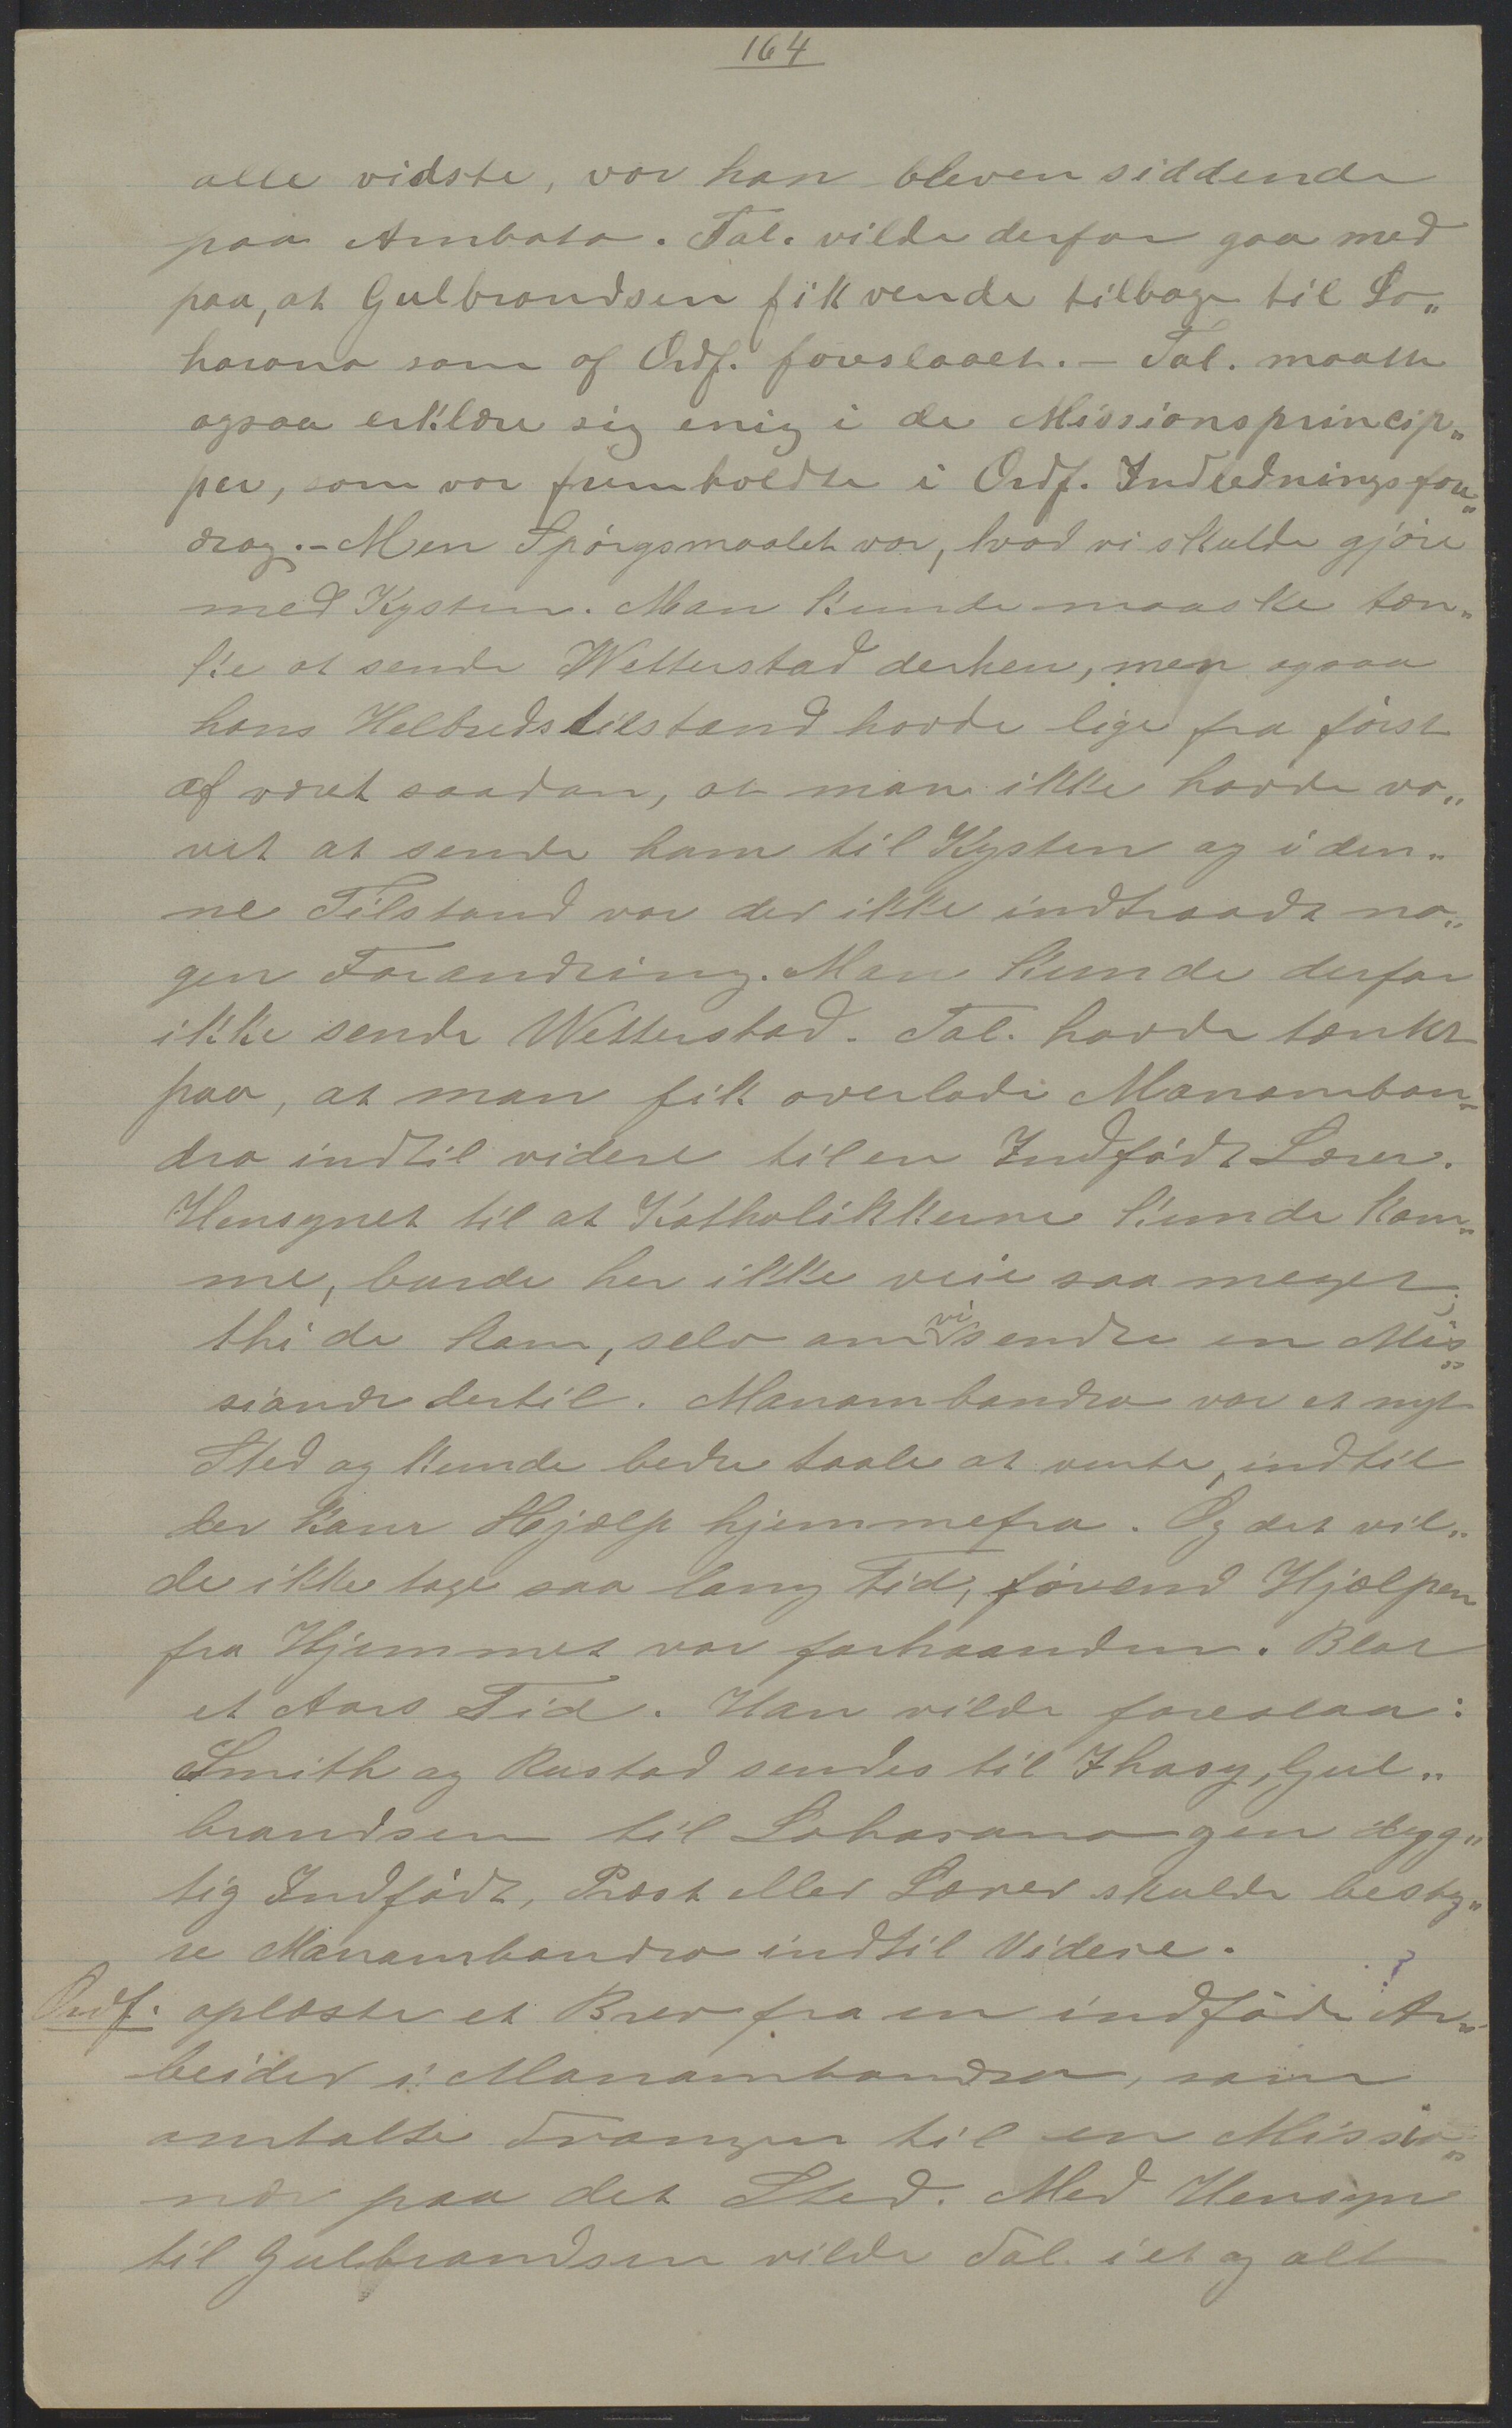 164
alle vidste, var han bleven siddende
paa Ambato. Tal. vilde derfor gaa med
paa, at Gulbrandsen fik vende tilbage til Lo„
harano som af Ordf. foreslaaet. – Tal. maatte
ogsaa erklære sig enig i de Missionsprincip„
per, som var fremholdte i Ordf. Indledningsfore„
drag. – Men Spörgsmaalet var, hvad vi skulde gjöre
med Kysten. Man kunde maaske tæn„
ke at sende Wetterstad derhen, men ogsaa
hans Helbredstilstand havde lige fra först
af været saadan, at man ikke havde vo„
vet at sende ham til Kysten og i den„
ne Tilstand var der ikke indtraadt no„
gen Forandring. Man kunde derfor
ikke sende Wetterstad. Tal. havde tænkt
paa, at man fik overlade Manamban„
dro indtil videre til en Indfödt Lærer.
Hensynet til at Katholikkerne kunde kom„
me, burde her ikke veie saa meget;
thi de kom, selv om vi sendte en Mis„
sionær dertil. Manambondro var et nyt
Sted og kunde bedre taale at vente, indtil
der kom Hjælp hjemmefra. Og det vil„
de ikke tage saa lang Tid, förend Hjælpen
fra Hjemmet var forhaanden. Blot
et Aars Tid. Han vilde foreslaa:
Smith og Rustad sendes til Ihosy, Gul„
brandsen til Loharano og en dyg„
tig Indfödt, Præst eller Lærer skulde besty„
re Manambondro indtil Videre.
Ordf. oplæste et Brev fra en indfödt ? Ar„
beider i Manambondro, som
omtalte Trangen til en Missio„
nær paa det Sted. Med Hensyn
til Gulbrandsen vilde Tal. i et og alt